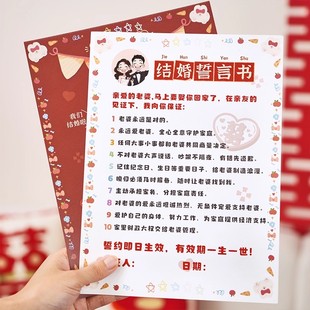 结婚誓言书
Jie Hun Shi Yan Shu
亲爱的老婆,马上要娶你回家了,在亲友的
见证下,我向你保证:
1 老婆永远是对的。
2 永远爱老婆,全心全意守护家庭。
3 钱间大事小事都和老婆共同商量决定。
4 不对老婆大声说话,吵架不隔夜,有错先道歉。
5 记住纪念日,生日等重要日子,给老婆制造浪漫。
6 晚归必须及时报备,随时让老婆找到我。
7 主动承担家务,分担家庭责任。
8 对老婆的爱永远坦诚热烈,无条件宠爱支持老婆。
9 爱护自己的身体,努力工作,为家庭提供经济支持
10 家里财政大权交给老婆管理。
誓约即日生效,有效期一生一世!
人: 日期:
我们
结婚啦